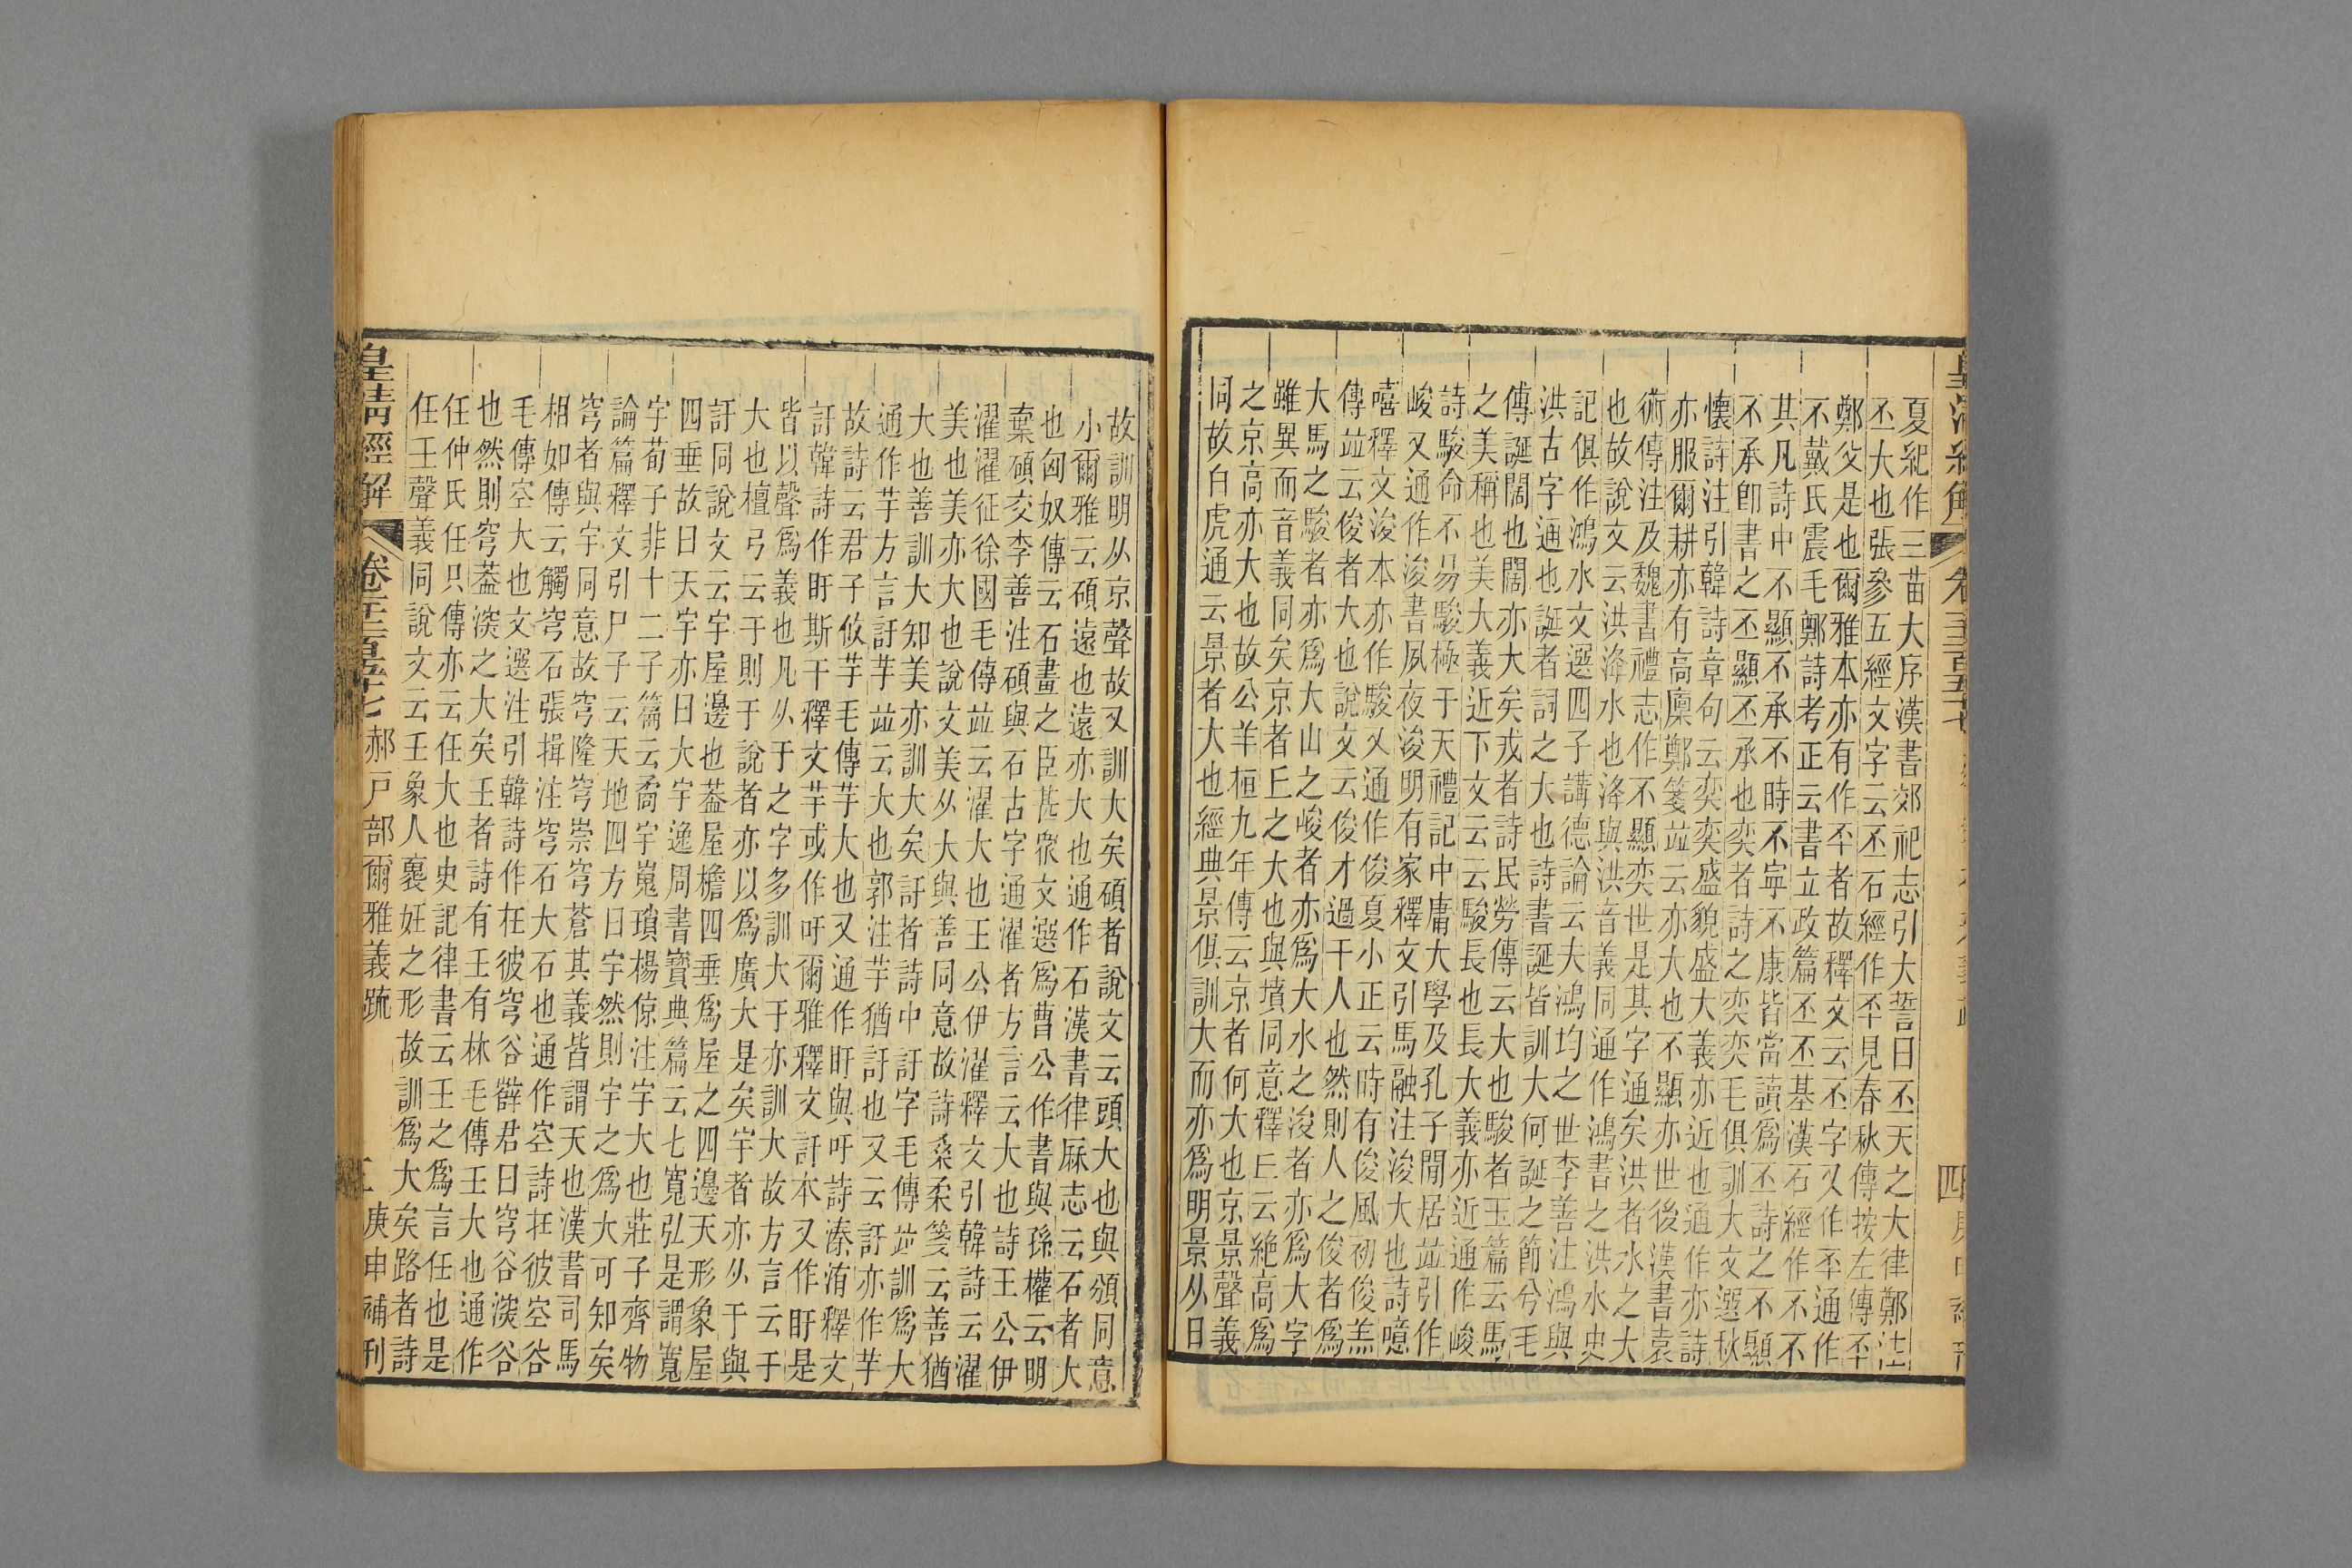 夏紀作三苗大序漢書郊祀志引大誓曰丕天之大律鄭注
丕大也張參五經文字云丕石經作㔻見春秋傳按左傳㔻
鄭父是也爾雅本亦有作㔻者故釋文云丕字又作㔻通作
不戴氏震毛鄭詩考正云書立政篇丕丕基漢石經作不不
其凡詩中不顯不承不時不寧不康皆當讀爲丕詩之不顯
不承卽書之丕顯丕承也奕者詩之奕奕毛俱訓大文選秋
懷詩注引韓詩章句云奕奕盛貌盛大義亦近也通作亦詩
亦服爾耕亦有高廩鄭箋竝云亦大也不顯亦世後漢書袁
術傳注及魏書禮志作不顯奕世是其字通矣洪者水之大
也故說文云洪洚水也洚與洪音義同通作鴻書之洪水史
記俱作鴻水文選四子講德論云夫鴻均之世李善注鴻與
洪古字通也誕者詞之大也詩書誕皆訓大何誕之節兮毛
傳誕闊也闊亦大矣戎者詩民勞傳云大也駿者玉篇云馬
之美稱也美大義近下文云駿長也長大義亦近通作峻
詩駿命不昜駿極于天禮記中庸大學及孔子閒居竝引作
峻又通作浚書夙夜浚明有家釋文引馬融注浚大也詩噫
嘻釋文浚本亦作駿又通作俊夏小正云時有俊風初俊羔
傳竝云俊者大也說文云俊才過千人也然則人之俊者爲
大馬之駿者亦爲大山之峻者亦爲大水之浚者亦爲大字
雖異而音義同矣京者丘之大也與墳同意釋丘云絶高爲
之京高亦大也故公羊桓九年傳云京者何大也京景聲義
同故白虎通云景者大也經典景俱訓大而亦爲明景从日
四
故訓明从京聲故又訓大矣碩者說文云頭大也與頒同意
小爾雅云碩遠也遠亦大也通作石漢書律厤志云石者大
也匈奴傳云石畫之臣甚衆文選爲曹公作書與孫權云明
棄碩交李善注碩與石古字通濯者方言云大也詩王公伊
濯濯征徐國毛傳竝云濯大也王公伊濯釋文引韓詩云濯
美也美亦大也說文美从大與善同意故詩桑柔箋云善猶
大也善訓大知美亦訓大矣訏者詩中訏字毛傳竝訓爲大
通作芋方言訏芋竝云大也郭注芋猶訏也又云訏亦作芋
故詩云君子攸芋毛傳芋大也又通作盱與吁詩溱洧釋文
訏韓詩作盱斯干釋文芋或作吁爾雅釋文訏本又作盱是
皆以聲爲義也凡从于之字多訓大于亦訓大故方言云于
大也檀弓云于則于說者亦以爲廣大是矣宇者亦从于與
訏同說文云宇屋邊也蓋屋檐四垂爲屋之四邊天形象屋
四垂故曰天宇亦曰大宇逸周書寶典篇云七寬弘是謂寬
宇荀子非十二子篇云矞宇嵬瑣楊倞注宇大也莊子齊物
論篇釋文引尸子云天地四方曰宇然則宇之爲大可知矣
穹者與宇同意故穹隆穹崇穹蒼其義皆謂天也漢書司馬
相如傳云觸穹石張揖注穹石大石也通作空詩在彼空谷
毛傳空大也文選注引韓詩作在彼穹谷薛君曰穹谷深谷
也然則穹蓋深之大矣壬者詩有壬有林毛傳壬大也通作
任仲氏任只傳亦云任大也史記律書云壬之爲言任也是
任壬聲義同說文云壬象人裹妊之形故訓爲大矣路者詩
皇淸經解 卷千二百五十七 郝戸部爾雅義疏 五 庚申補刊